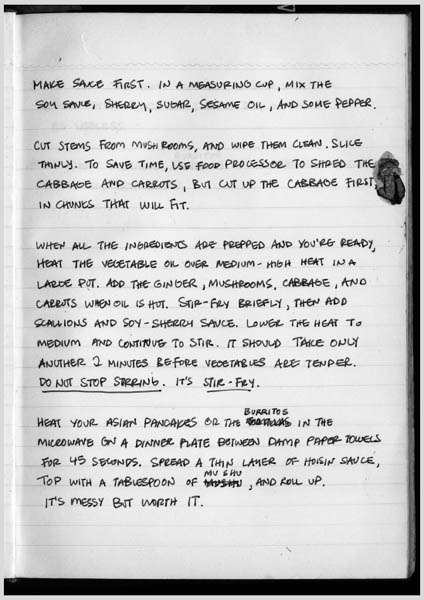 MAKE SAUCE FIRST. IN A MEASURING CUP, MIX THE
SOY SAUCE, SHERRY, SUGAR, SESAME OIL, AND SOME PEPPER.
CUT STEMS FROM MUSHROOMS, AND WIPE THEM CLEAN. SLICE
THINLY. TO SAVE TIME, USE FOOD PROCESSOR TO SHRED THE
CABBAGE AND CARROTS, BUT CUT UP THE CABBAGE FIRST,
IN CHUNKS THAT WILL FIT.
WHEN ALL THE INGREDIENTS ARE PREPPED AND YOU'RE READY,
HEAT THE VEGETABLE OIL OVER MEDIUM-HIGH HEAT IN A
LARGE POT. ADD THE GINGER, MUSHROOMS, CABBAGE, AND
CARROTS WHEN OIL IS HOT. STIR-FRY BRIEFLY, THEN ADD
SCALLIONS AND SOY-SHERRY SAUCE. LOWER THE HEAT TO
MEDIUM AND CONTINUE TO STIR. IT SHOULD TAKE ONLY
ANOTHER 2 MINUTES BEFORE VEGETABLES ARE TENDER.
DO NOT STOP STIRRING. IT'S STIR-FRY.
HEAT YOUR ASIAN PANCAKES OR THE BURRITOS IN THE
MICROWAVE ON A DINNER PLATE BETWEEN DAMP PAPER TOWELS
FOR 45 SECONDS. SPREAD A THIN LAYER OF HOISIN SAUCE,
TOP WITH A TABLESPOON OF MU SHU, AND ROLL UP.
IT'S MESSY BUT WORTH IT.